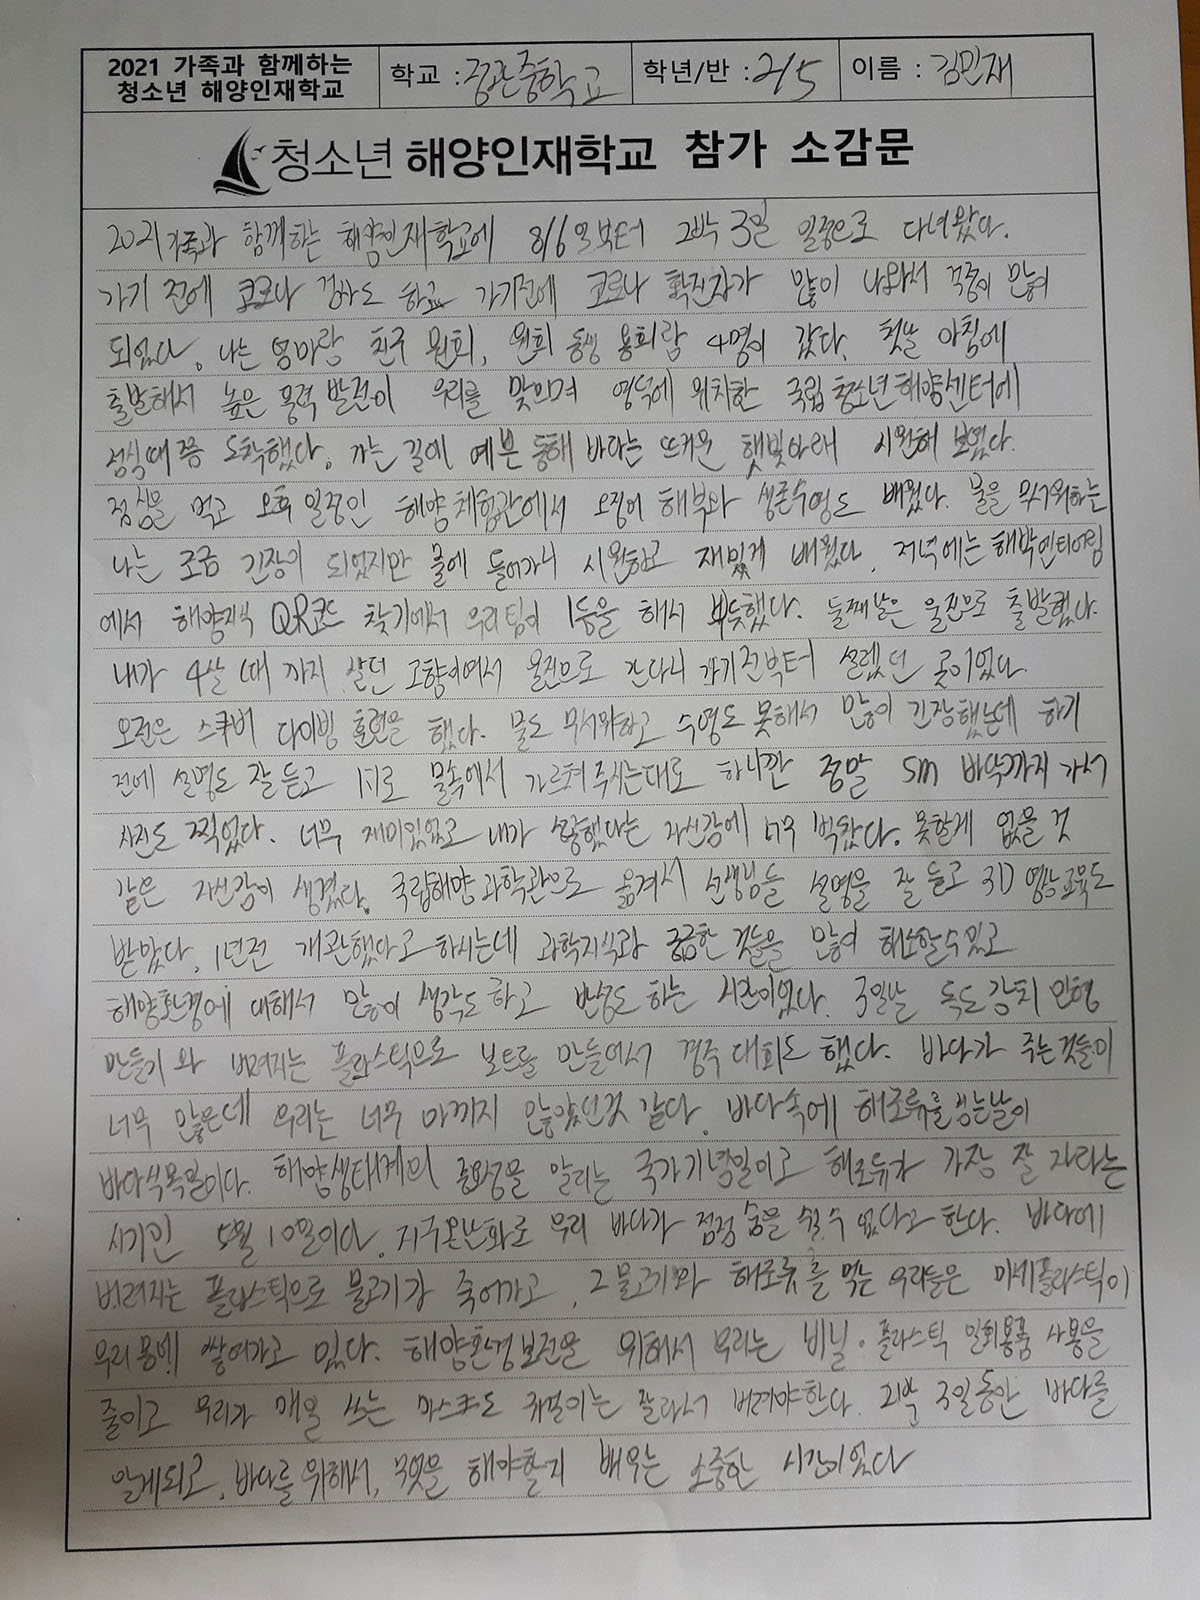 2021 가족과 함께하는
청소년 해양인재학교
학교 : 정관중학교 학년/반 : 2/5 이름 : 김민재
청소년 해양인재학교 참가 소감문
2021 가족과 함께하는 해양인재학교에 8/6일부터 2박 3일 일정으로 다녀왔다.
가기 전에 코로나 검사도 하고 가기전에 코로나 확진자가 많이 나와서 걱정이 많이
되었다. 나는 엄마랑 친구 원희, 원희 동생 용희랑 4명이 갔다. 첫날 아침에
출발해서 높은 풍력 발전이 우리를 맞으며 영덕에 위치한 국립청소년해양센터에
점심때쯤 도착했다. 가는 길에 예쁜 동해 바다는 뜨거운 햇빛아래 시원해 보였다.
점심을 먹고 오후 일정인 해양체험관에서 오징어 해부와 생존수영도 배웠다. 물을 무서워하는
나는 조금 긴장이 되었지만 물에 들어가니 시원하고 재밌게 배웠다. 저녁에는 해박엔티어링
에서 해양지식 QR코드 찾기에서 우리팀이 1등을 해서 뿌듯했다. 둘째날은 울진으로 출발했다.
내가 4살 때 까지 살던 고향이여서 울진으로 간다니 가기전부터 설렜던 곳이었다
오전은 스쿠버 다이빙 훈련을 했다. 물도 무서워하고 수영도 못해서 많이 긴장했는데 하기
전에 설명도 잘 듣고 1:1로 물속에서 가르쳐주시는대로 하니깐 정말 5m 바닥까지 가서
사진도 찍었다. 너무 재미있었고 내가 성공했다는 자신감에 너무 벅찼다. 못할게 없을 것
같은 자신감이 생겼다. 국립해양과학관으로 옮겨서 선생님들 설명을 잘 듣고 3D 영상교육도
받았다. 1년전 개관했다고 하시는데 과학지식과 궁금한 것들을 많이 해소할수있고
해양환경에 대해서 많이 생각도하고 반성도 하는 시간이었다. 3일날 독도 강치 인형
만들기 와 버려지는 플라스틱으로 보트를 만들어서 경주 대회도 했다. 바다가 주는것들이
너무 많은데 우리는 너무 아끼지 않았던것 같다. 바다속에 해조류를 심는날이
바다식목일이다. 해양생태계의 중요성을 알리는 국가기념일이고 해조류가 가장 잘 자라는
시기인 5월 10일이다. 지구온난화로 우리 바다가 점점 숨을 쉴 수 없다고 한다. 바다에
버려지는 플라스틱으로 물고기가 죽어가고, 그 물고기와 해조류를 먹는 우리들은 미세플라스틱이
우리몸에 쌓여가고 있다. 해양환경보전을 위해서 우리는 비닐·플라스틱 일회용품 사용을
줄이고 우리가 매일 쓰는 마스크도 귀걸이는 잘라서 버려야한다. 2박 3일동안 바다를
알게되고, 바다를위해서, 무엇을 해야할지 배우는 소중한 시간이었다